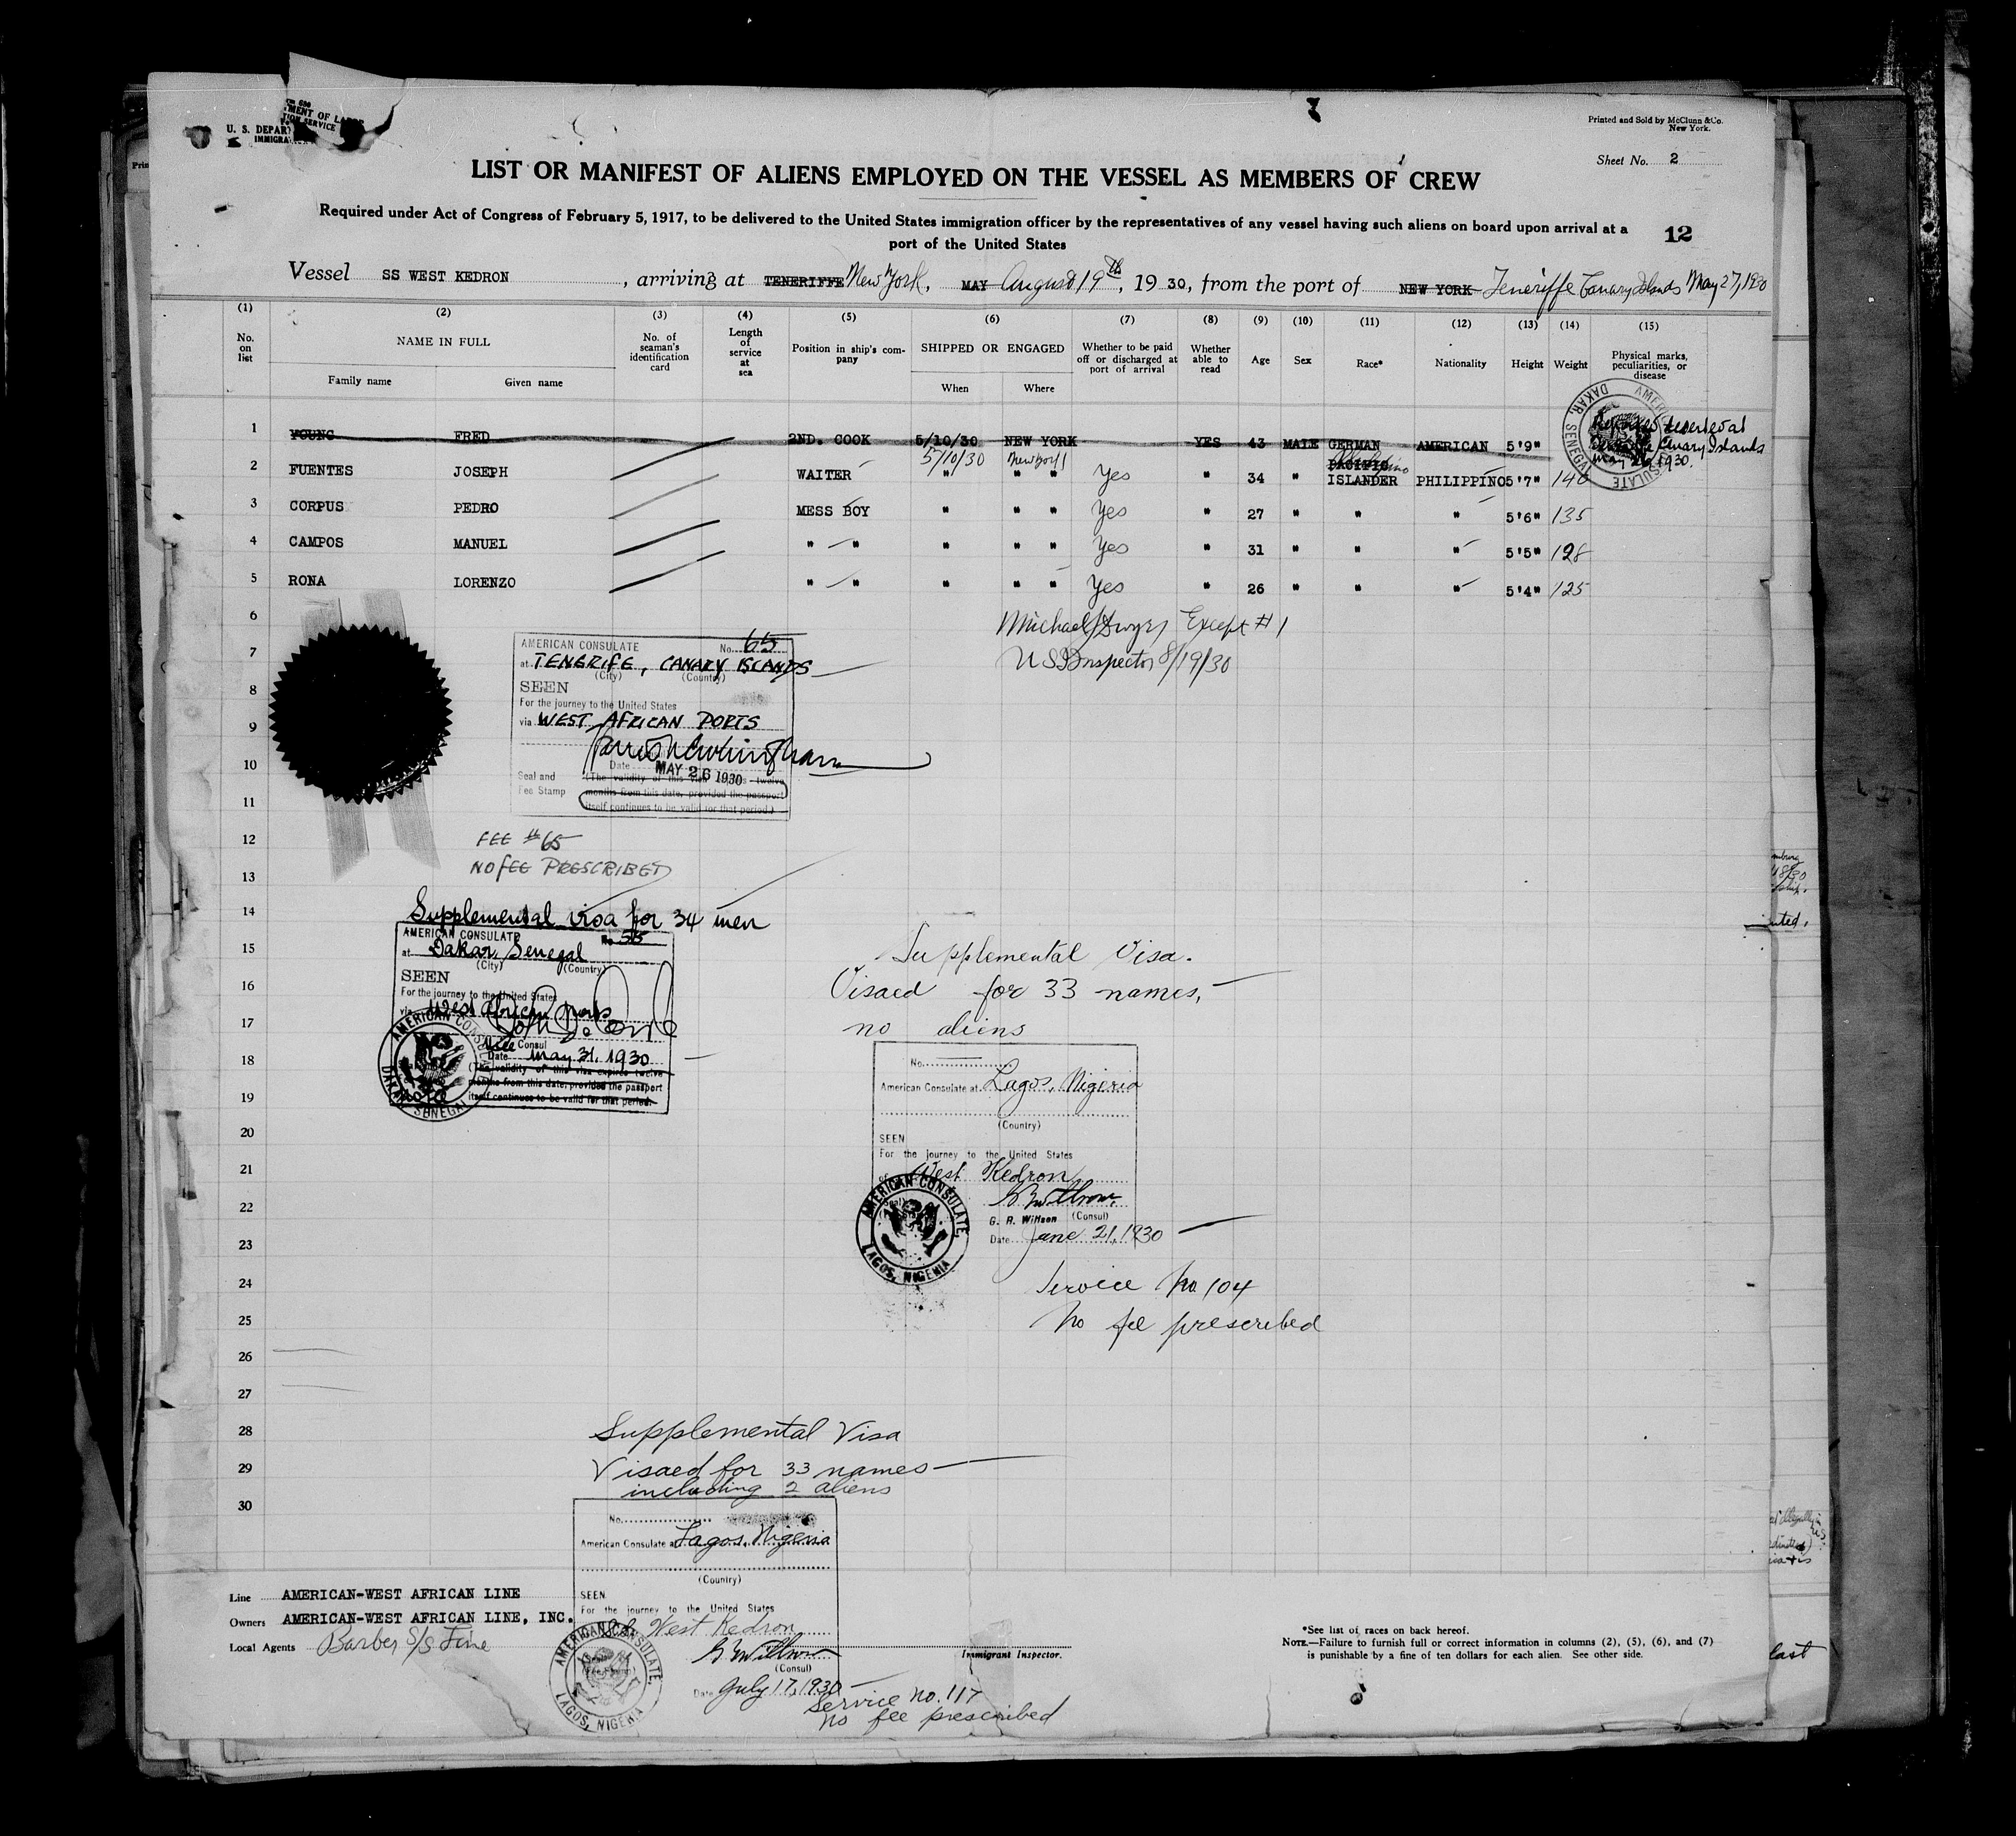 Printed and Sold by McClunn &Co.
New York.
U. S. DEPAR
MENT OF LABOR
IMMIGRA
TION SERVICE
Sheet No. 2
LIST OR MANIFEST OF ALIENS EMPLOYED ON THE VESSEL AS MEMBERS OF CREW
Required under Act of Congress of February 5, 1917, to be delivered to the United States immigration officer by the representatives of any vessel having such aliens on board upon arrival at a
port of the United States
12
Vessel SS WEST KEDRON, arriving at TENERIFFE New York, MAY August 19th, 1930, from the port of NEW YORK Teneriffe Canary Islands May 27, 1930
(1) (2) (3) (4) (5) (6) (7) (8) (9) (10) (11) (12) (13) (14) (15)
No. on list
NAME IN FULL
Family name Given name
No. of seaman's identification card
Length of service at sea
Position in ship's company
SHIPPED OR ENGAGED
When Where
Whether to be paid off or discharged at port of arrival
Whether able to read
Age
Sex
Race*
Nationality
Height
Weight
Physical marks, peculiarities, or disease
1 YOUNG FRED 2ND. COOK 5/10/30 NEW YORK YES 43 MALE GERMAN AMERICAN 5'9"
deserted at
Canary Islands
May 26, 1930.
5/10/30 New York
2 FUENTES JOSEPH WAITER " " " Yes " 34 " PACIFIC ISLANDER PHILIPPINO 5'7" 140
3 CORPUS PEDRO MESS BOY " " " Yes " 27 " " " 5'6" 135
4 CAMPOS MANUEL " " " " " Yes " 31 " " " 5'5" 128
5 RONA LORENZO " " " " " Yes " 26 " " " 5'4" 125
6
7
8
9
10
11
12
13
14
15
16
17
18
19
20
21
22
23
24
25
26
27
28
29
30
Michael Dwyer Except #1
US Inspector 8/19/30
AMERICAN CONSULATE No. 65
at TENERIFE, CANARY ISLANDS
(City) (Country)
SEEN
For the journey to the United States
via WEST AFRICAN PORTS
Date MAY 26 1930
Seal and
Fee Stamp
(The validity of this visa expires twelve
months from this date, provided the passport
itself continues to be valid for that period.)
FEE #65
NO FEE PRESCRIBED
Supplemental visa for 34 men
AMERICAN CONSULATE No 515
at Dakar, Senegal
(City) (Country)
SEEN
For the journey to the United States
via West African Ports
Vice Consul
Date May 31, 1930
(The validity of this visa expires twelve
months from this date, provided the passport
itself continues to be valid for that period.
AMERICAN CONSULATE
DAKAR, SENEGAL
Supplemental Visa.
Visaed for 33 names,
no aliens
No.
American Consulate at Lagos, Nigeria
(Country)
SEEN
For the journey to the United States
West Kedron
G. R. Willson (Consul)
Date June 21, 1930
AMERICAN CONSULATE,
LAGOS, NIGERIA
Service No. 104
No fee prescribed
Supplemental Visa
Visaed for 33 names
including 2 aliens
No.
American Consulate at Lagos, Nigeria
(Country)
SEEN
For the journey to the United States
West Kedron
(Consul)
Date July 17, 1930
AMERICAN CONSULATE,
LAGOS, NIGERIA
Service No. 117
No fee prescribed
Line AMERICAN-WEST AFRICAN LINE
Owners AMERICAN-WEST AFRICAN LINE, INC.
Local Agents Barber S/S Line
Immigrant Inspector.
*See list of races on back hereof.
NOTE.—Failure to furnish full or correct information in columns (2), (5), (6), and (7)
is punishable by a fine of ten dollars for each alien. See other side.
last